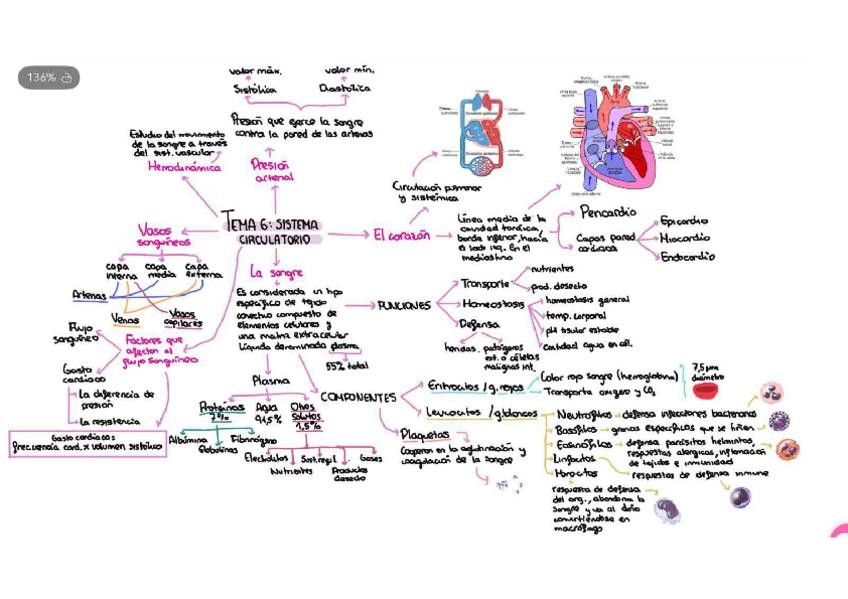 136%
valor máx.
valor mín.
Sistólica
Diastólica
Presión que ejerce la sangre
contra la pared de las arterias
Estudio del movimiento
de la sangre a través
del sist. vascular
Hemodinámica
Presión
arterial
Circulación pulmonar
y sistémica
TEMA 6: SISTEMA
CIRCULATORIO
Vasos
sanguíneos
capa
interna
capa
media
capa
externa
Arterias
Venas
Vasos
capilares
El corazón
Línea media de la
cavidad torácica,
borde inferior, hacia
el lado izq. En el
mediastino
Pericardio
Capas pared
cardiaca
Epicardio
Miocardio
Endocardio
La sangre
Es considerada un tipo
específico de tejido
conectivo compuesto de
elementos celulares y
una matriz extracelular
líquida denominada plasma
55% total
FUNCIONES
Transporte
nutrientes
prod. desecho
Homeostasis
homeostasis general
temp. corporal
pH tisular estable
cantidad agua en cél.
Defensa
heridas
patógenos
ext. o células
malignas int.
Flujo
sanguíneo
Factores que
afectan al
flujo sanguíneo
Gasto
cardiaco
La diferencia de
presión
La resistencia
Gasto cardiaco =
frecuencia card. x volumen sistólico
Plasma
Proteínas
7%
Agua
91,5%
Otros
solutos
1,5%
Albúmina
Globulinas
Fibrinógeno
Electrolitos
Nutrientes
Sust. regul.
Productos
desecho
Gases
COMPONENTES
Eritrocitos / g. rojos
Color rojo sangre (hemoglobina)
Transporta oxígeno y CO₂
7,5 µm
diámetro
Leucocitos / g. blancos
Neutrófilos → defensa infecciones bacterianas
Basófilos → granos específicos que se tiñen
Eosinófilos → defensa parásitos helmintos,
respuestas alérgicas, inflamación
de tejidos e inmunidad
Linfocitos
respuestas de defensa inmune
Monocitos
respuesta de defensa
del org., abandona la
sangre y va al daño
convirtiéndose en
macrófago
Plaquetas
Cooperan en la aglutinación y
coagulación de la sangre